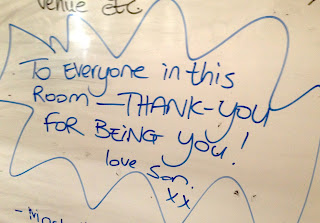 venue etc
To Everyone in this
Room — THANK-YOU
FOR BEING YOU!
love San.
xx